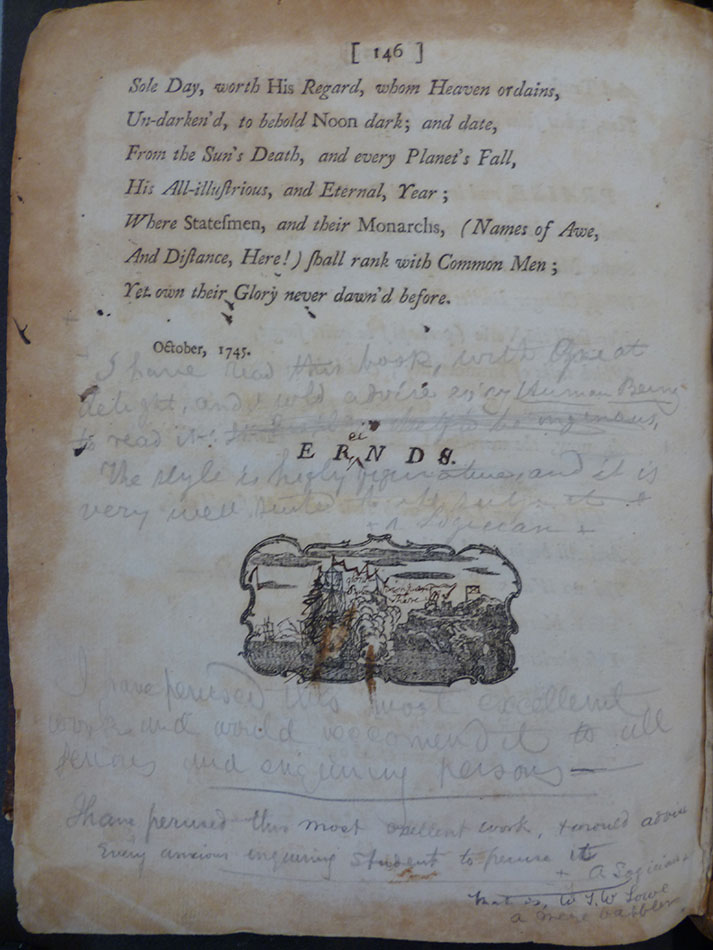 [ 146 ]
Sole Day, worth His Regard, whom Heaven ordains,
Un-darken'd, to behold Noon dark; and date,
From the Sun's Death, and every Planet's Fall,
His All-illuſtrious, and Eternal, Year;
Where Stateſmen, and their Monarchs, (Names of Awe,
And Diſtance, Here!) ſhall rank with Common Men;
Yet own their Glory never dawn'd before.
October, 1745.
I have read this book, with Great
delight, and wold advise every Human Being
to read it.
ei
E R N D S.
The style is higly figurative and it is
very well suited to its subject
+ A Logician +
I have perused this most excellent
work and would reccomend it to all
serious and enquiring persons—
I have perused this most exellent work, & would advise
Every anxious enquiring student to peruse it
+ A Logician +
that is, W T. W Lowe
a mere babbler